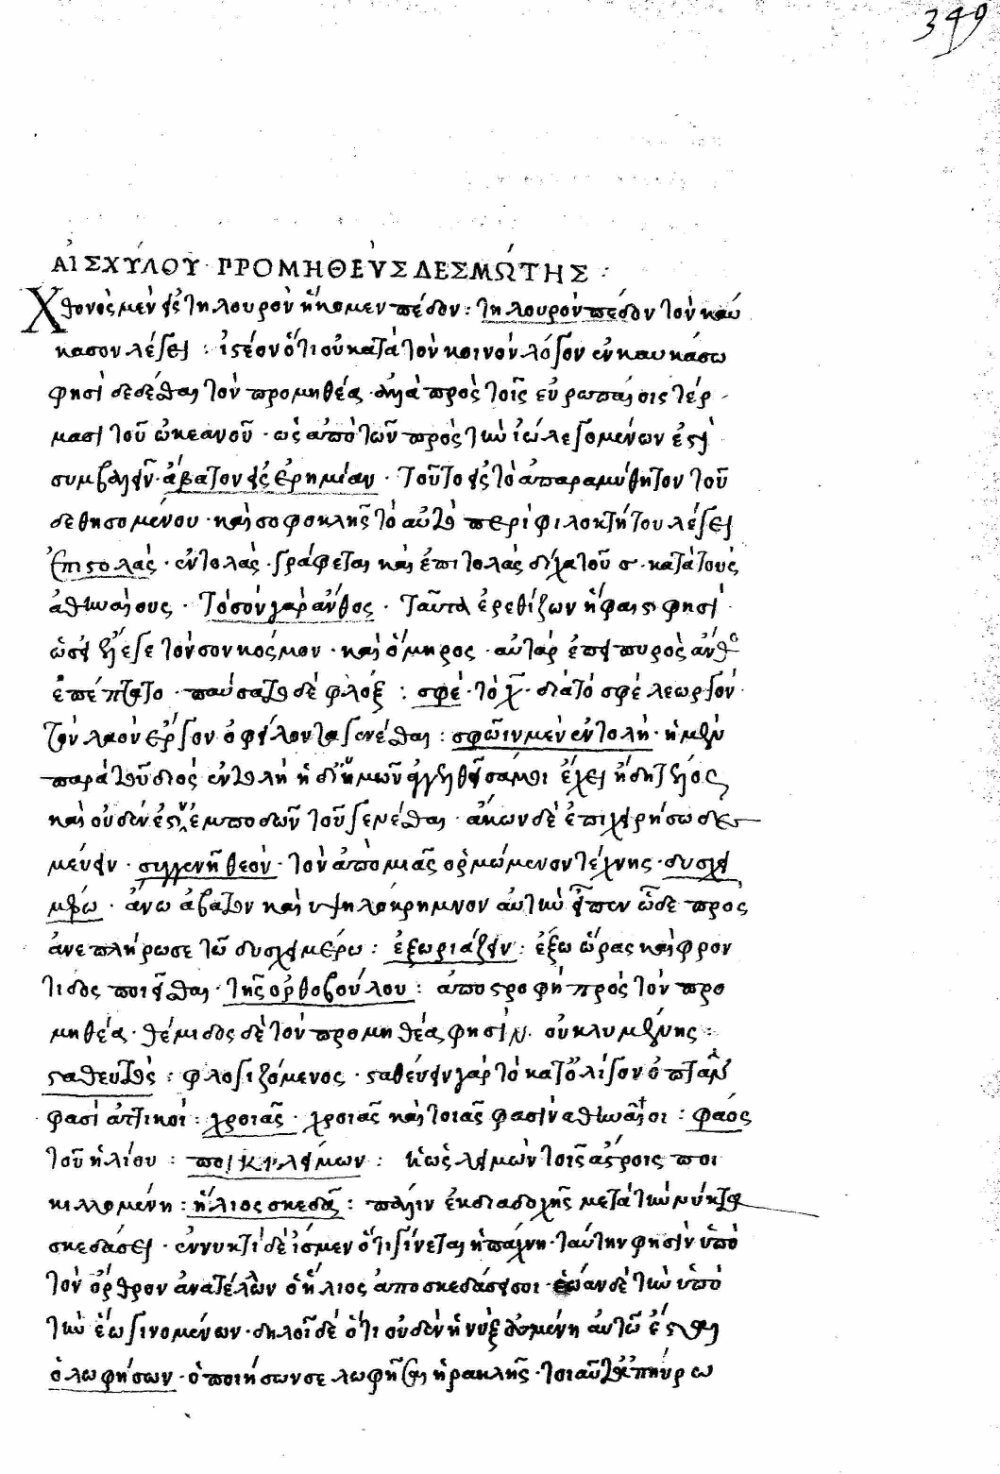 349
ΑἸΣΧΎΛΟΥ· ΠΡΟΜΗΘΕῪΣ ΔΕΣΜΏΤΗΣ :
Χθονὸς μὲν εἰς τηλουρὸν ἥκομεν πέδον : τηλουρὸν πέδον τὸν καύ
κασον λέγει : ἰστέον ὅτι οὐ κατὰ τὸν κοινὸν λόγον ἐν καυκάσω
φησὶ δεδέσθαι τὸν προμηθέα· ἀλλὰ πρὸς τοῖς εὐρωπαίοις τέρ
μασι τοῦ ὠκεανοῦ· ὡς ἀπὸ τῶν πρὸς τὴν ἰὼ λεγομένων ἐστὶ
συμβαλεῖν· ἄβατον εἰς ἐρημίαν· τοῦτο εἰς τὸ ἀπαραμύθητον τοῦ
δεθησομένου· καὶ σοφοκλῆς τὸ αὐτὸ περὶ φιλοκτήτου λέγει
ἐπιστολὰς· ἐντολὰς· γράφεται καὶ ἐπιτολὰς δίχα τοῦ σ· κατὰ τοὺς
ἀθηναίους· τὸ σὸν γὰρ ἄνθος· ταῦτα ἐρεθίζων ἥφαιστον φησὶ·
ὡσεὶ ἔλεγε τὸν σὸν κόσμον· καὶ ὅμηρος· αὐτὰρ ἐπεὶ πυρὸς ἄνθος
ἐπέπτατο· παύσατο δὲ φλόξ : σφέ· τὸ χ· διὰ τὸ σφὲ λεωργὸν·
τὸν λαῶν ἔργον ὀφείλοντα γενέσθαι : σφῶιν μὲν ἐντολὴ· ἡ μὲν
παρὰ τοῦ διὸς ἐντολὴ ἡ δι' ἡμῶν ἀγγελθεῖσα ἔχει ἤδη τέλος
καὶ οὐδὲν ἐστὶν ἐμποδῶν τοῦ γενέσθαι· ἄκων δὲ ἐπιχειρήσω δες
μεύειν· συγγενῆ θεὸν· τὸν ἀπὸ μιᾶς ὁρμώμενον τέχνης· δυσχει
μέρω· ἄνω ἄβατον καὶ ὑψηλόκρημνον αὐτὴν εἶπεν ὧδε πρὸς
ἀνεπλήρωσε τῶ δυσχειμέρω : ἐξωριάζειν : ἔξω ὥρας καὶ φρον
τίδος ποιεῖσθαι· τῆς ὀρθοβούλου : ἀποστροφὴ πρὸς τὸν προ
μηθέα· θέμιδος δὲ τὸν προμηθέα φησὶν· οὐ κλυμένης :
σταθευτὸς : φλογιζόμενος· σταθεύειν γὰρ τὸ κατ' ὀλίγον ὀπτᾶν
φασὶ ἀττικοί : χροιᾶς· χροιᾶς καὶ ποιᾶς φασὶν ἀθηναῖοι : φάος
τοῦ ἡλίου : ποικιλείμων : ἡ ὡς λειμὼν τοῖς ἄστροις ποι
κιλλομένη : ἥλιος σκεδᾶ : πάλιν ἐκ διαδοχῆς μετὰ τὴν νύκτα
σκεδάσει· ἐν νυκτὶ δὲ ἴσμεν ὅτι γίνεται ἡ πάχνη· ταύτην φησὶν ὑπὸ
τὸν ὄρθρον ἀνατέλλων ὁ ἥλιος ἀποσκεδάσει σοι· ἑώαν δὲ τὴν ὑπὸ
τὴν ἕω γινομένων· δηλοῖ δὲ ὅτι οὐδὲν ἡ νὺξ αὐτῶ ἔσται
ὁ λωφήσων· ὁ ποιήσων σε λωφῆσαι ἡρακλῆς· τοιαῦτ' ἐπηύρω